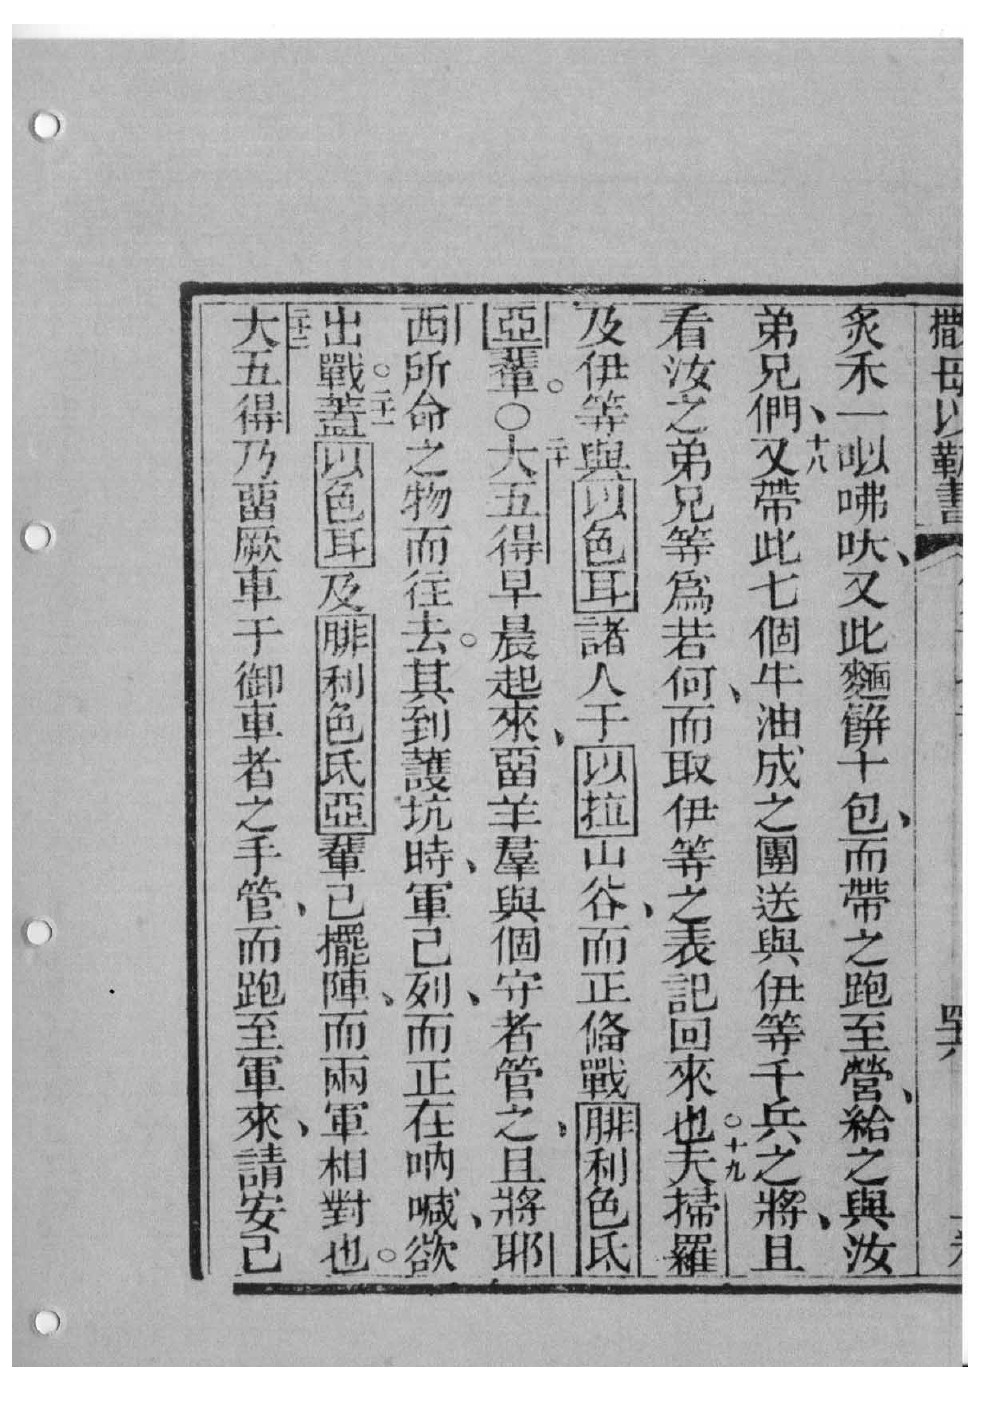 撒母以勒書
炙禾一𠯈咈吠、又此麵餅十包、而帶之跑至營、給之與汝
弟兄們、十八又帶此七個牛油成之團送與伊等千兵之將、且
看汝之弟兄等爲若何、而取伊等之表記回來也。十九夫掃羅
及伊等與以色耳諸人于以拉山谷、而正俻戰腓利色氐
亞輩。○二十大五得早晨起來、畱羊羣與個守者管之、且將耶
西所命之物而往去。其到護坑時、軍己列、而正在吶喊、欲
出戰。二十一蓋以色耳及腓利色氐亞輩己擺陣、而兩軍相對也。
二十二大五得乃畱厥車于御車者之手管、而跑至軍來、請安己